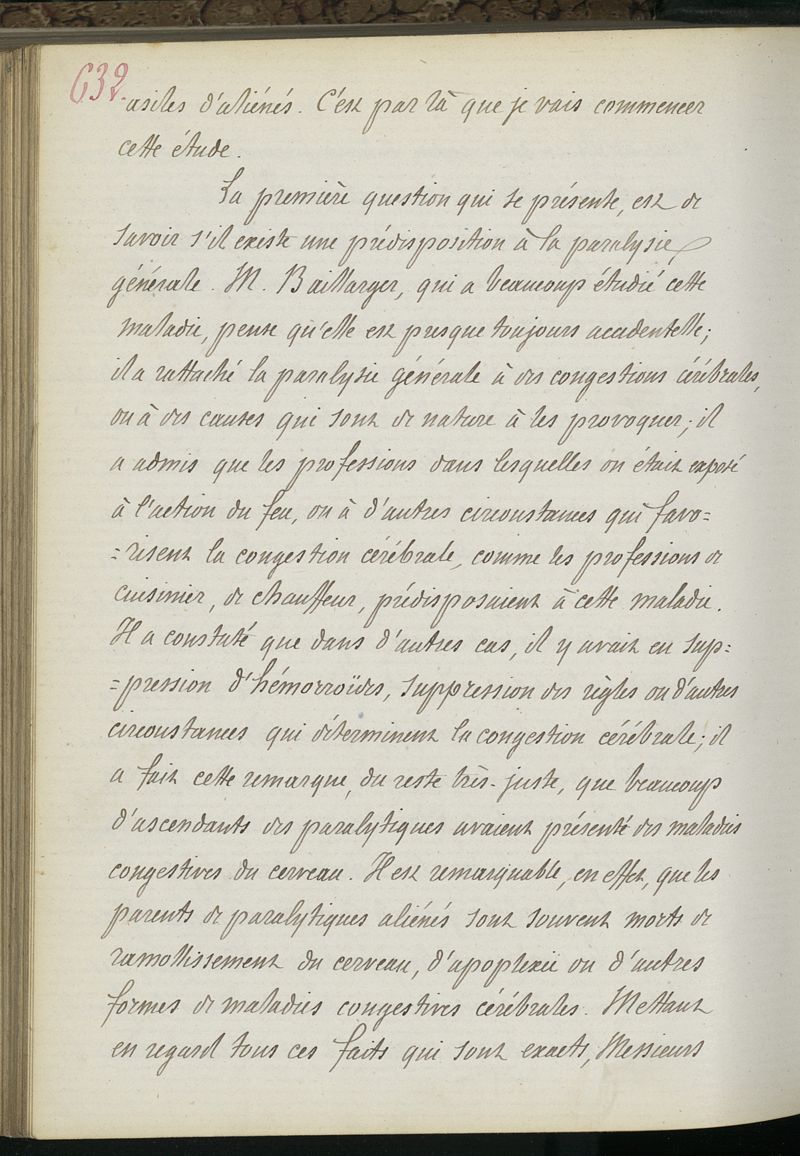 632.
asiles d'aliénés. C'est par là que je vais commencer
cette étude.
La première question qui se présente, est de
savoir s'il existe une prédisposition à la paralysie
générale. M. Baillarger, qui a beaucoup étudié cette
maladie, pense qu'elle est presque toujours accidentelle;
il a rattaché la paralysie générale à des congestions cérébrales,
ou à des causes qui sont de nature à les provoquer; il
a admis que les professions dans lesquelles on était exposé
à l'action du feu, ou à d'autres circonstances qui favo=
=risent la congestion cérébrale, comme les professions de
cuisinier, de chauffeur, prédisposaient à cette maladie.
Il a constaté que dans d'autres cas, il y avait eu sup=
=pression d'hémorroïdes, suppression des règles ou d'autres
circonstances qui déterminent la congestion cérébrale; il
a fait cette remarque, du reste très-juste, que beaucoup
d'ascendants des paralytiques avaient présenté des maladies
congestives du cerveau. Il est remarquable, en effet, que les
parents de paralytiques aliénés sont souvent morts de
ramollissement du cerveau, d'apoplexie ou d'autres
formes de maladies congestives cérébrales. Mettant
en regard tous ces faits qui sont exacts, Messieurs